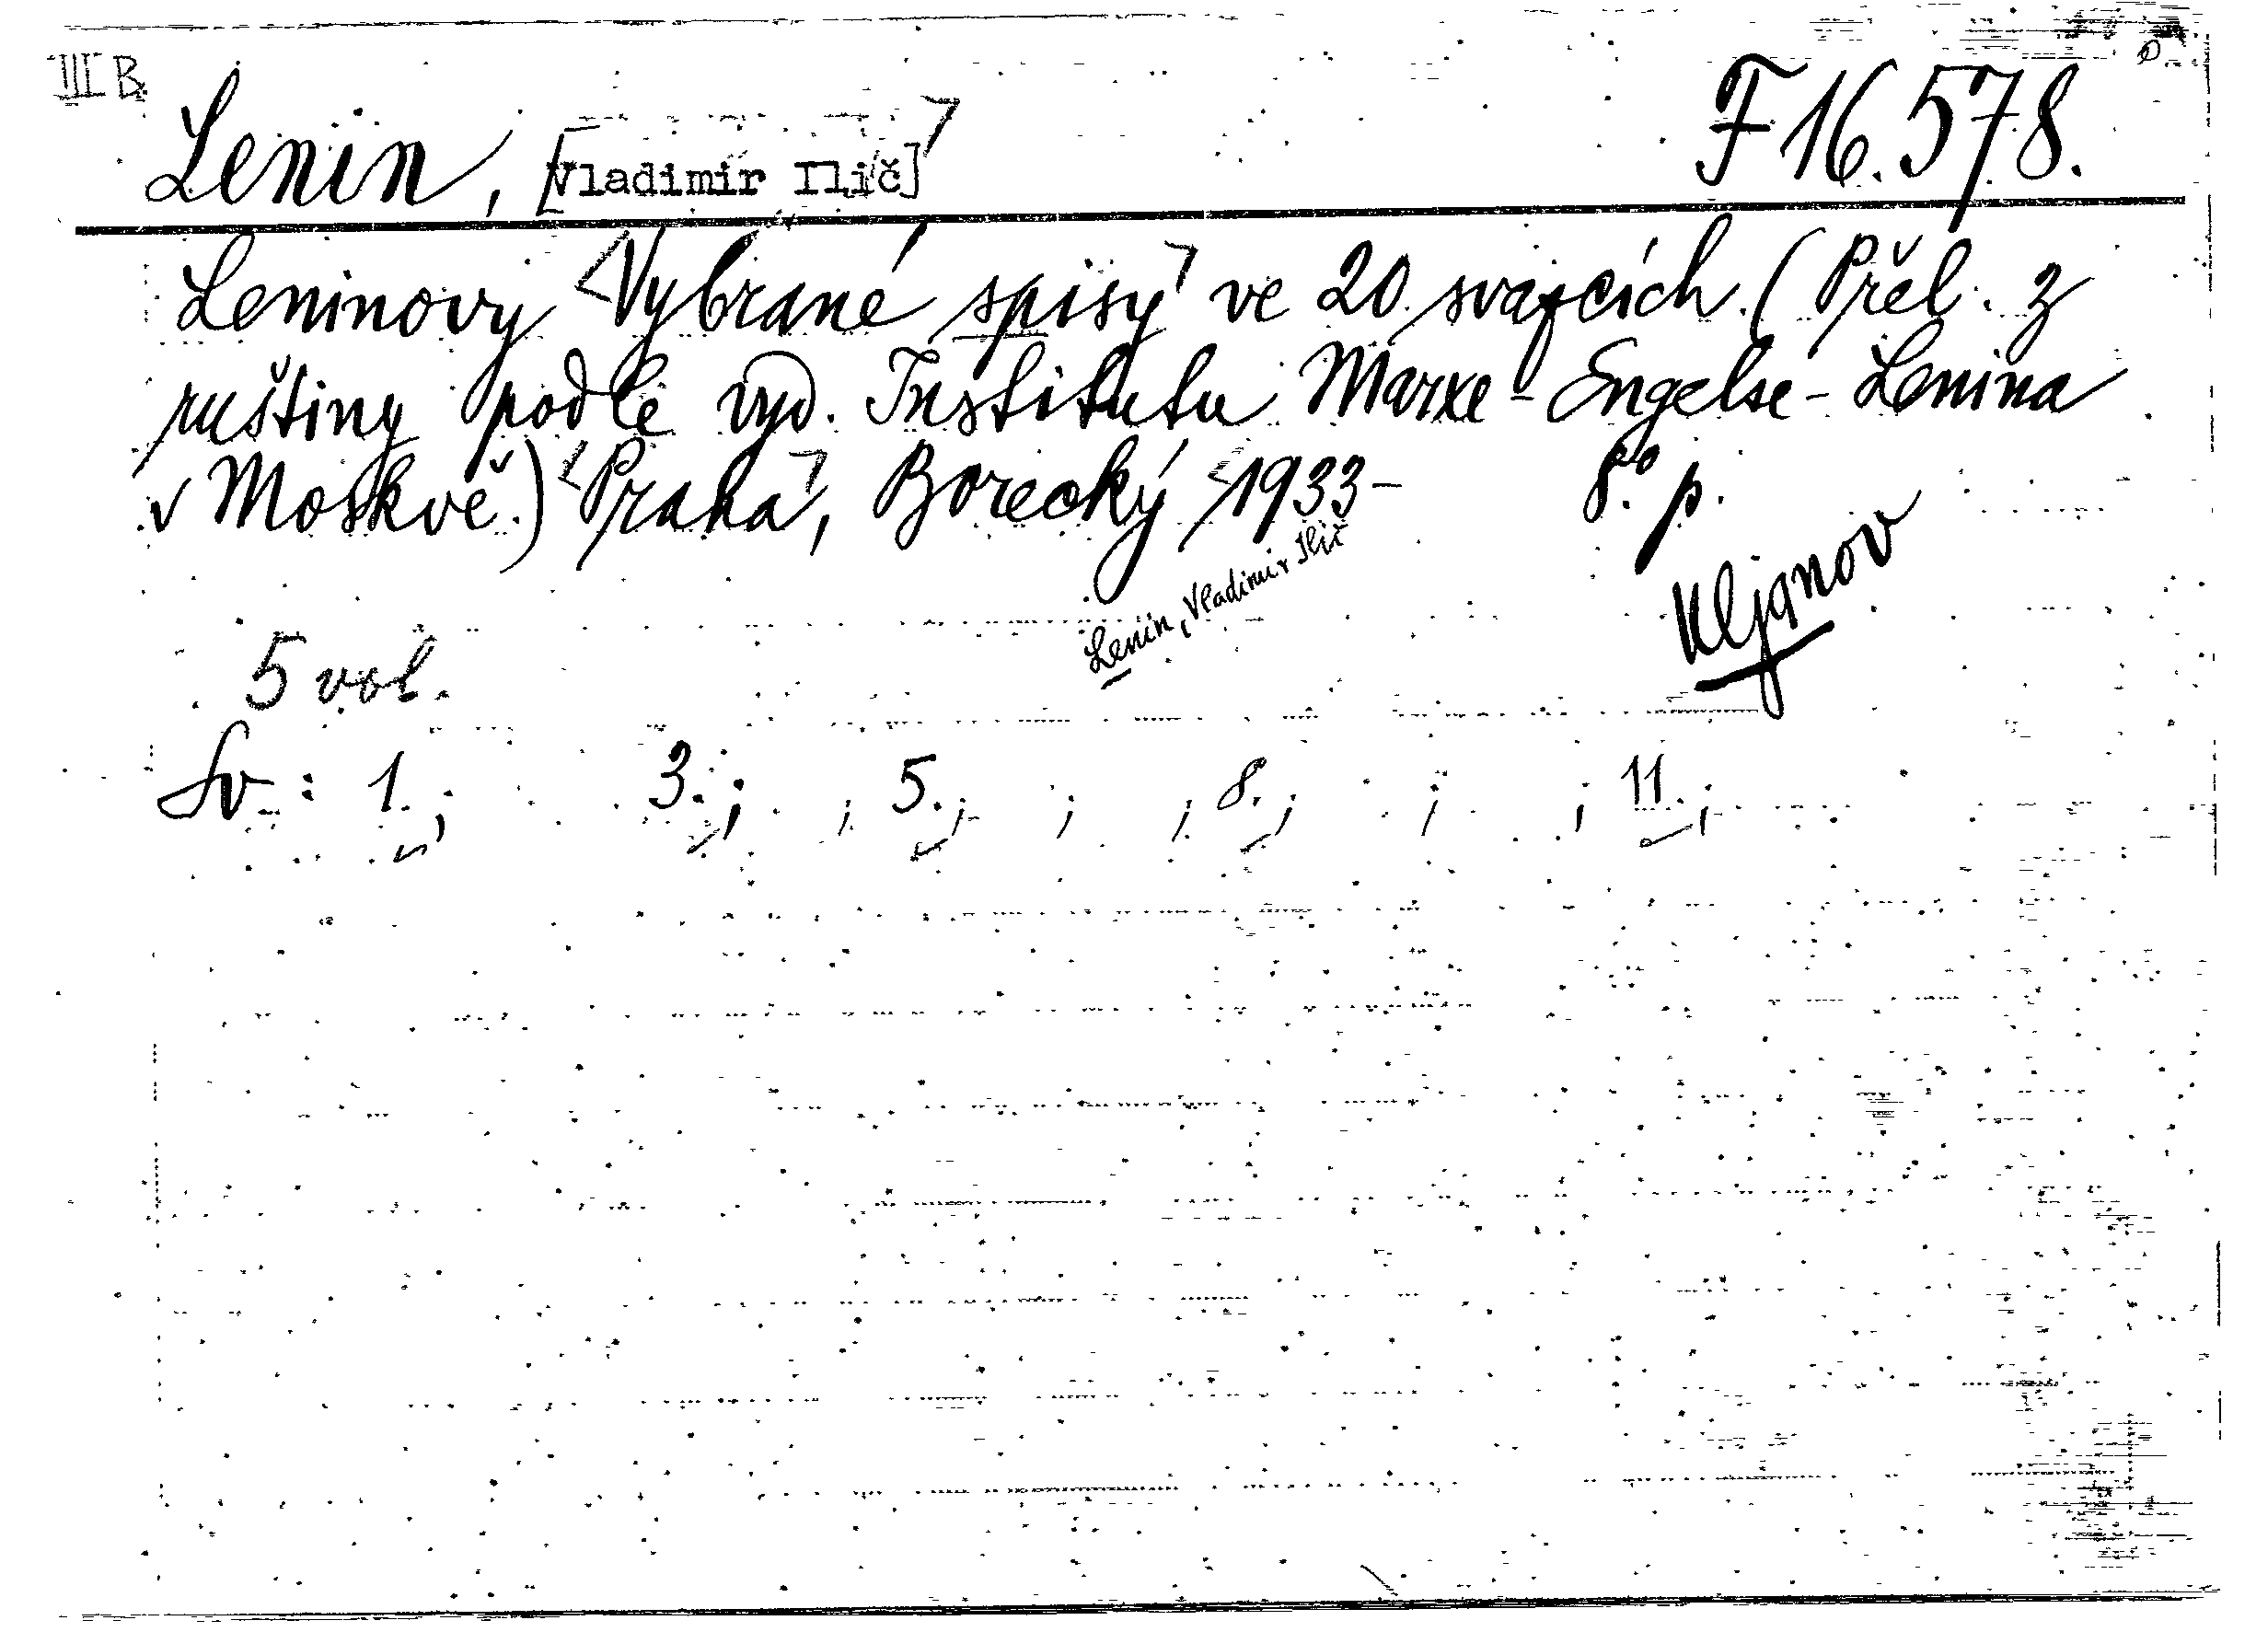 III B
Lenin, [Vladimir Ilič] F 16.578.
Leninovy <Vybrané spisy> ve 20 svazcích. (Přel. z
ruštiny podle vyd. Institutu Marxe-Engelse-Lenina
v Moskvě.) <Praha>, Borecký <1933- 8° p.
Lenin, Vladimir Ilič
Uljanov
5 vol.
Sv.: 1.; 3.; ; 5.; ; ; 8.; ; ; 11.;